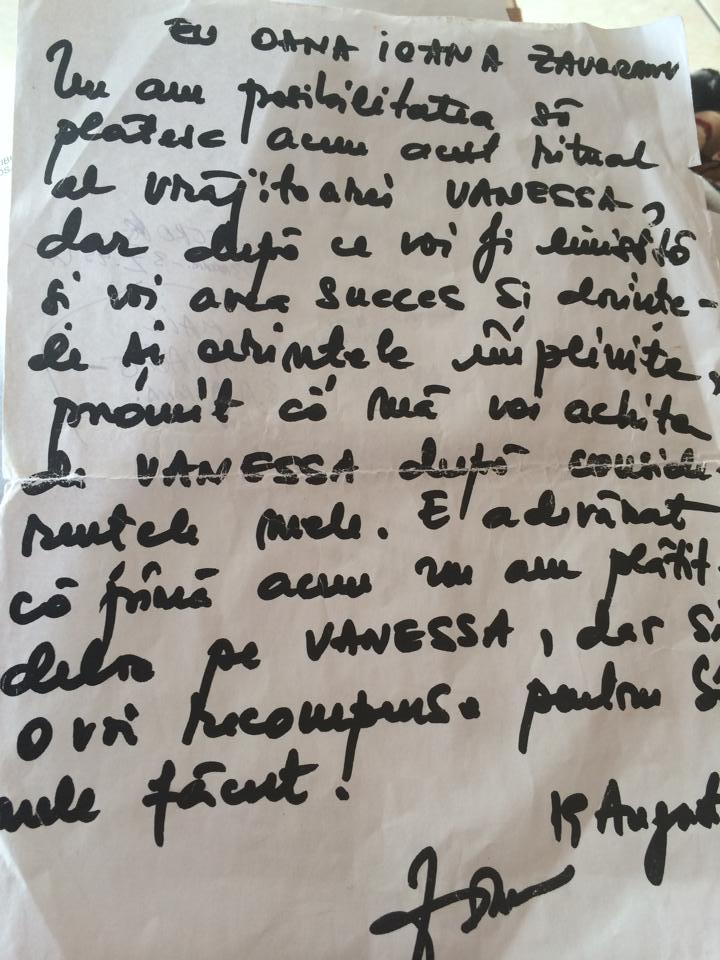 EU OANA IOANA ZAVORANU
Nu am posibilitatea să
plătesc acum acest ritual
al vrăjitoarei VANESSA,
dar după ce voi fi
si voi avea succes si dorinte-
le si împlinite,
promit că mă voi achita
de VANESSA după
mele. E adevărat
că până acum nu am plătit-
pe VANESSA, dar Să
O voi recompensa pentru
făcut!
19 August